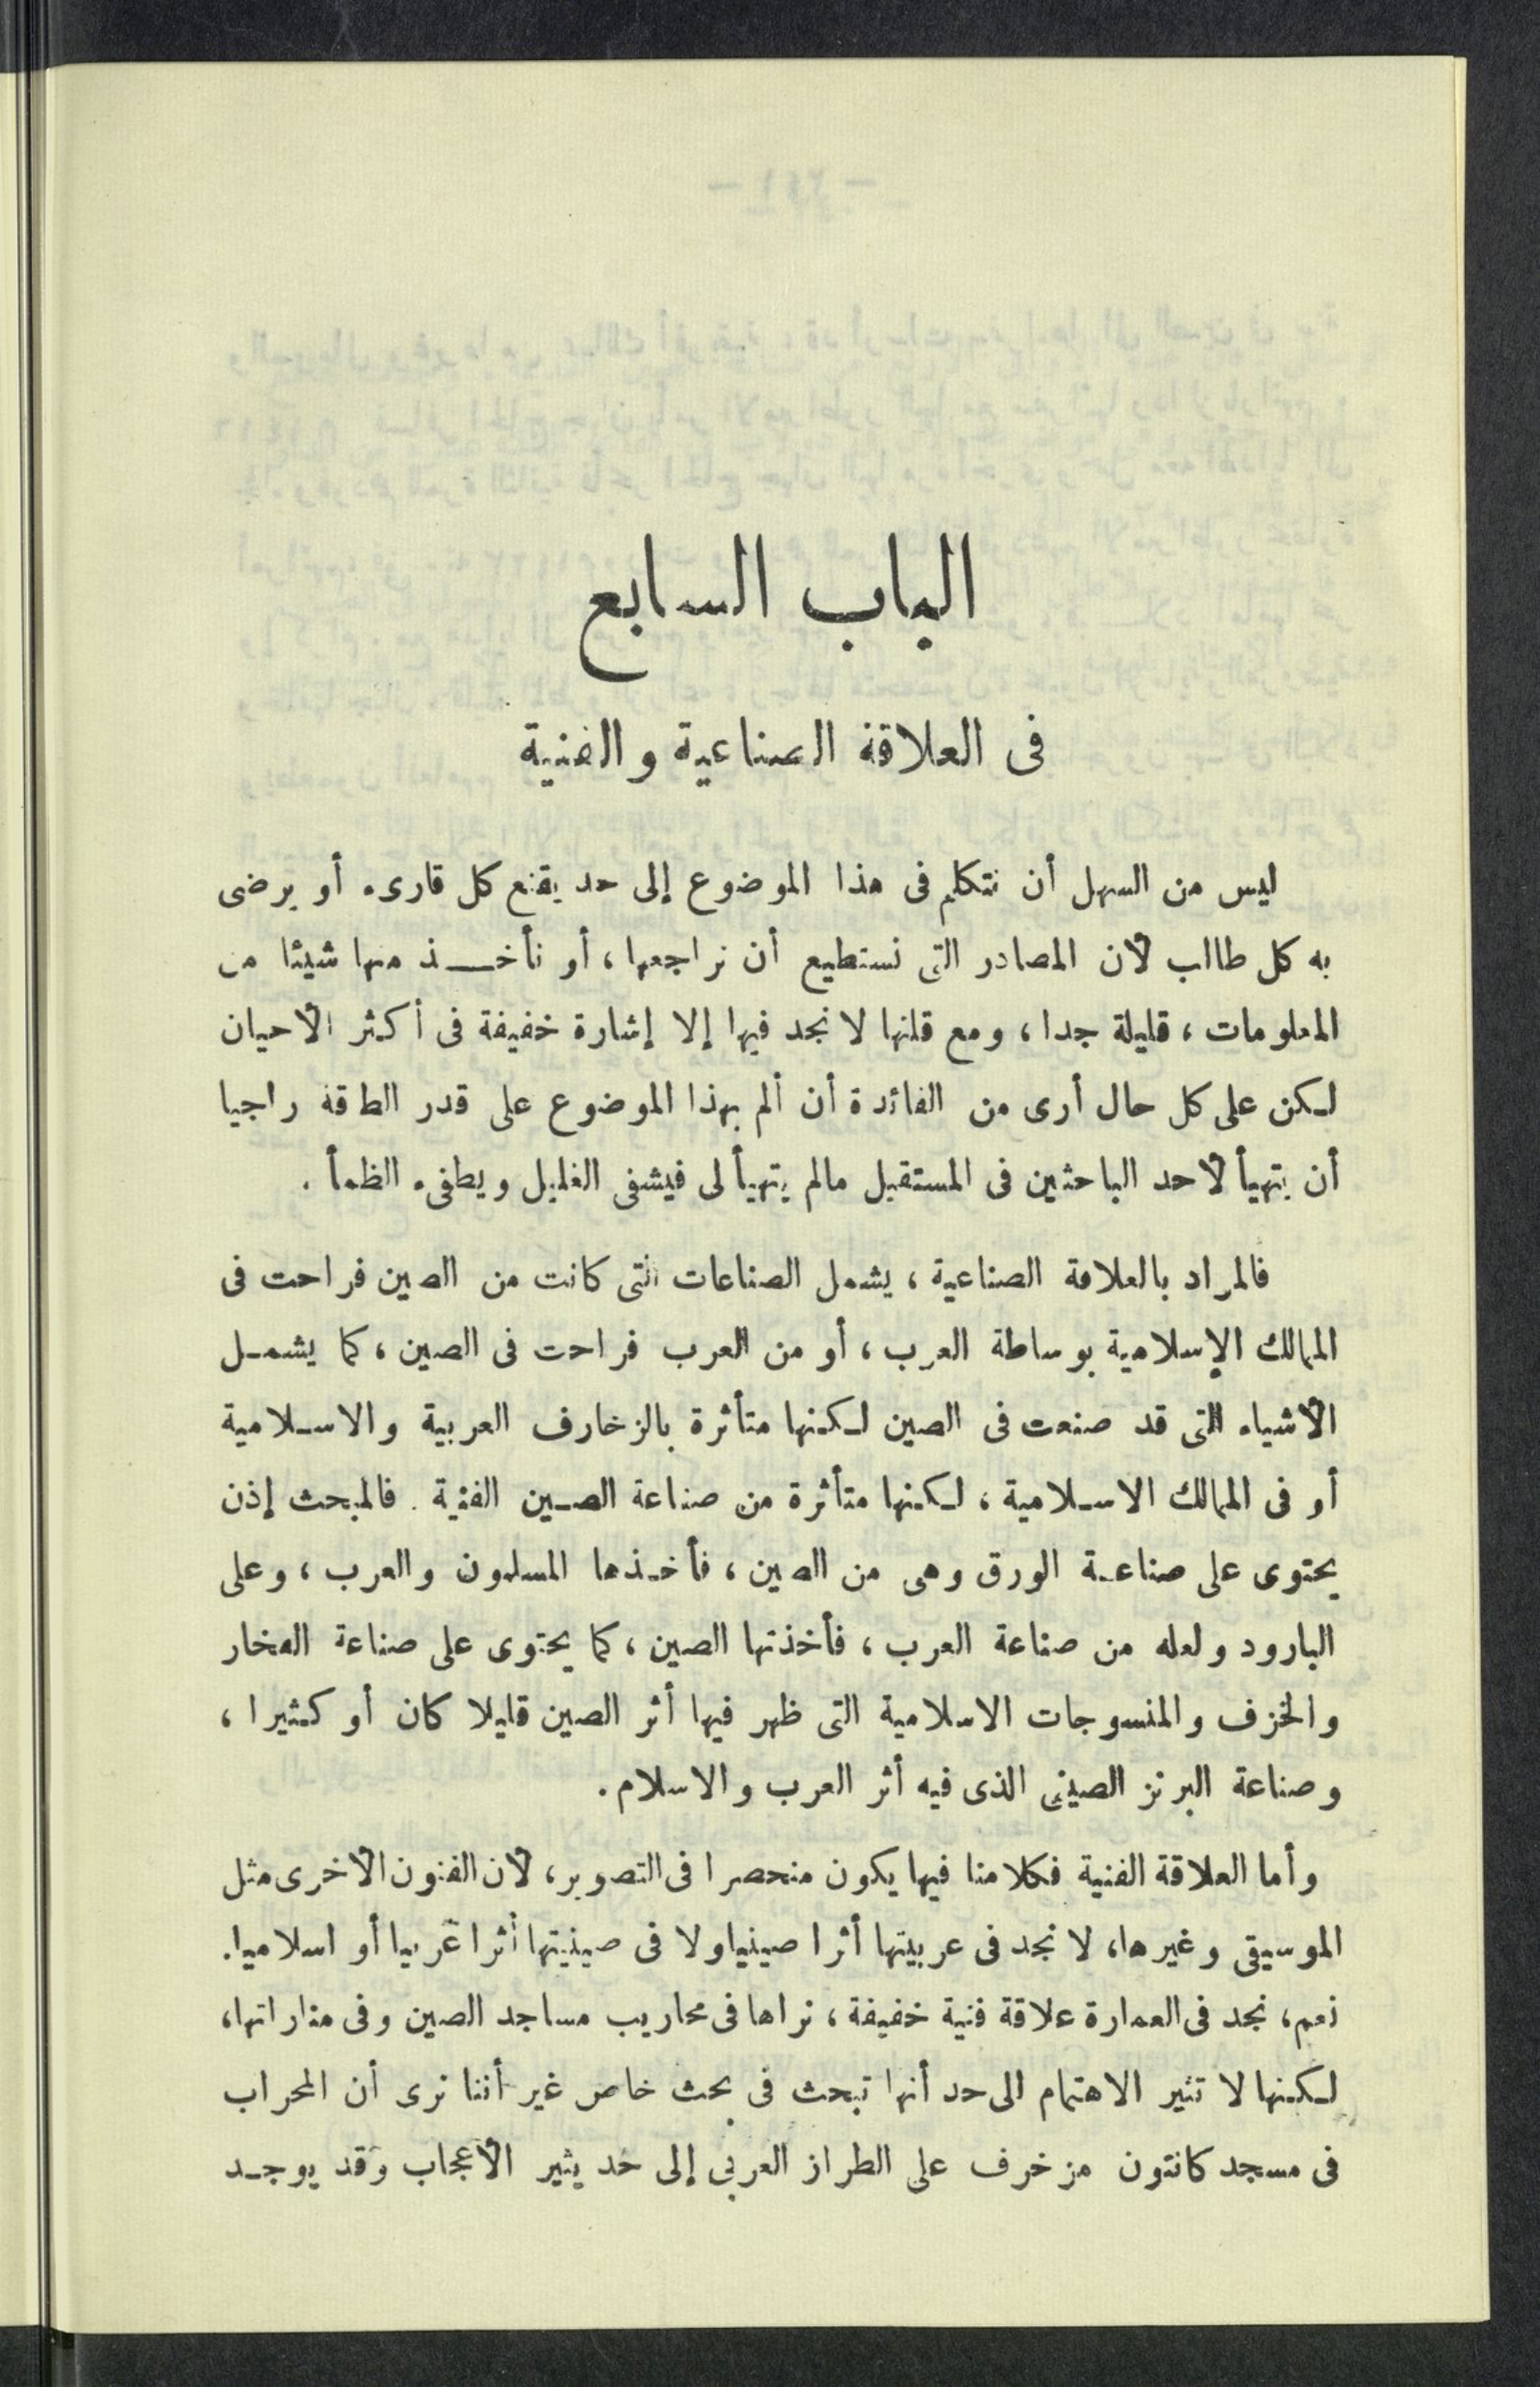 الباب السابع
فى العلاقة الصناعية والفنية
ليس من السهل أن نتكلم فى هذا الموضوع إلى حد يقنع كل قارىء أو يرضى
به كل طالب لأن المصادر التى نستطيع أن نراجعها ، أو نأخذ منها شيئا من
المعلومات ، قليلة جدا ، ومع قلتها لا نجد فيها إلا إشارة خفيفة فى أكثر الأحيان
لكن على كل حال أرى من الفائدة أن ألم بهذا الموضوع على قدر الطاقة راجيا
أن يتهيأ لأحد الباحثين فى المستقبل مالم يتهيأ لى فيشفى الغليل ويطفىء الظمأ .
فالمراد بالعلاقة الصناعية ، يشمل الصناعات التى كانت من الصين فراحت فى
الممالك الإسلامية بوساطة العرب ، أو من العرب فراحت فى الصين ، كما يشمل
الأشياء التى قد صنعت فى الصين لكنها متأثرة بالزخارف العربية والاسلامية
أو فى الممالك الاسلامية ، لكنها متأثرة من صناعة الصين الفنية . فالمبحث إذن
يحتوى على صناعة الورق وهى من الصين ، فأخذها المسلمون والعرب ، وعلى
البارود ولعله من صناعة العرب ، فأخذتها الصين ، كما يحتوى على صناعة الفخار
والخزف والمنسوجات الاسلامية التى ظهر فيها أثر الصين قليلا كان أو كثيرا ،
وصناعة البرنز الصينى الذى فيه أثر العرب والاسلام .
وأما العلاقة الفنية فكلامنا فيها يكون منحصرا فى التصوير ، لأن الفنون الأخرى مثل
الموسيقى وغيرها ، لا نجد فى عربيتها أثرا صينيا ولا فى صينيتها أثرا عربيا أو اسلاميا .
نعم ، نجد فى العمارة علاقة فنية خفيفة ، نراها فى محاريب مساجد الصين وفى مناراتها ،
لكنها لا تثير الاهتمام الى حد أنها تبحث فى بحث خاص غير أننا نرى أن المحراب
فى مسجد كانتون مزخرف على الطراز العربى إلى حد يثير الأعجاب وقد يوجد